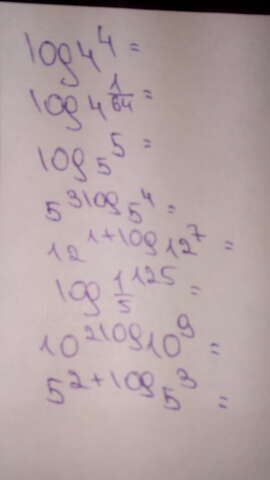 log₄ 4 =
log₄ 1/64 =
log₅ 5 =
5^(3log₅ 4) =
12^(1+log₁₂ 7) =
log_(1/5) 125 =
10^(2log₁₀ 9) =
5^(2+log₅ 3) =